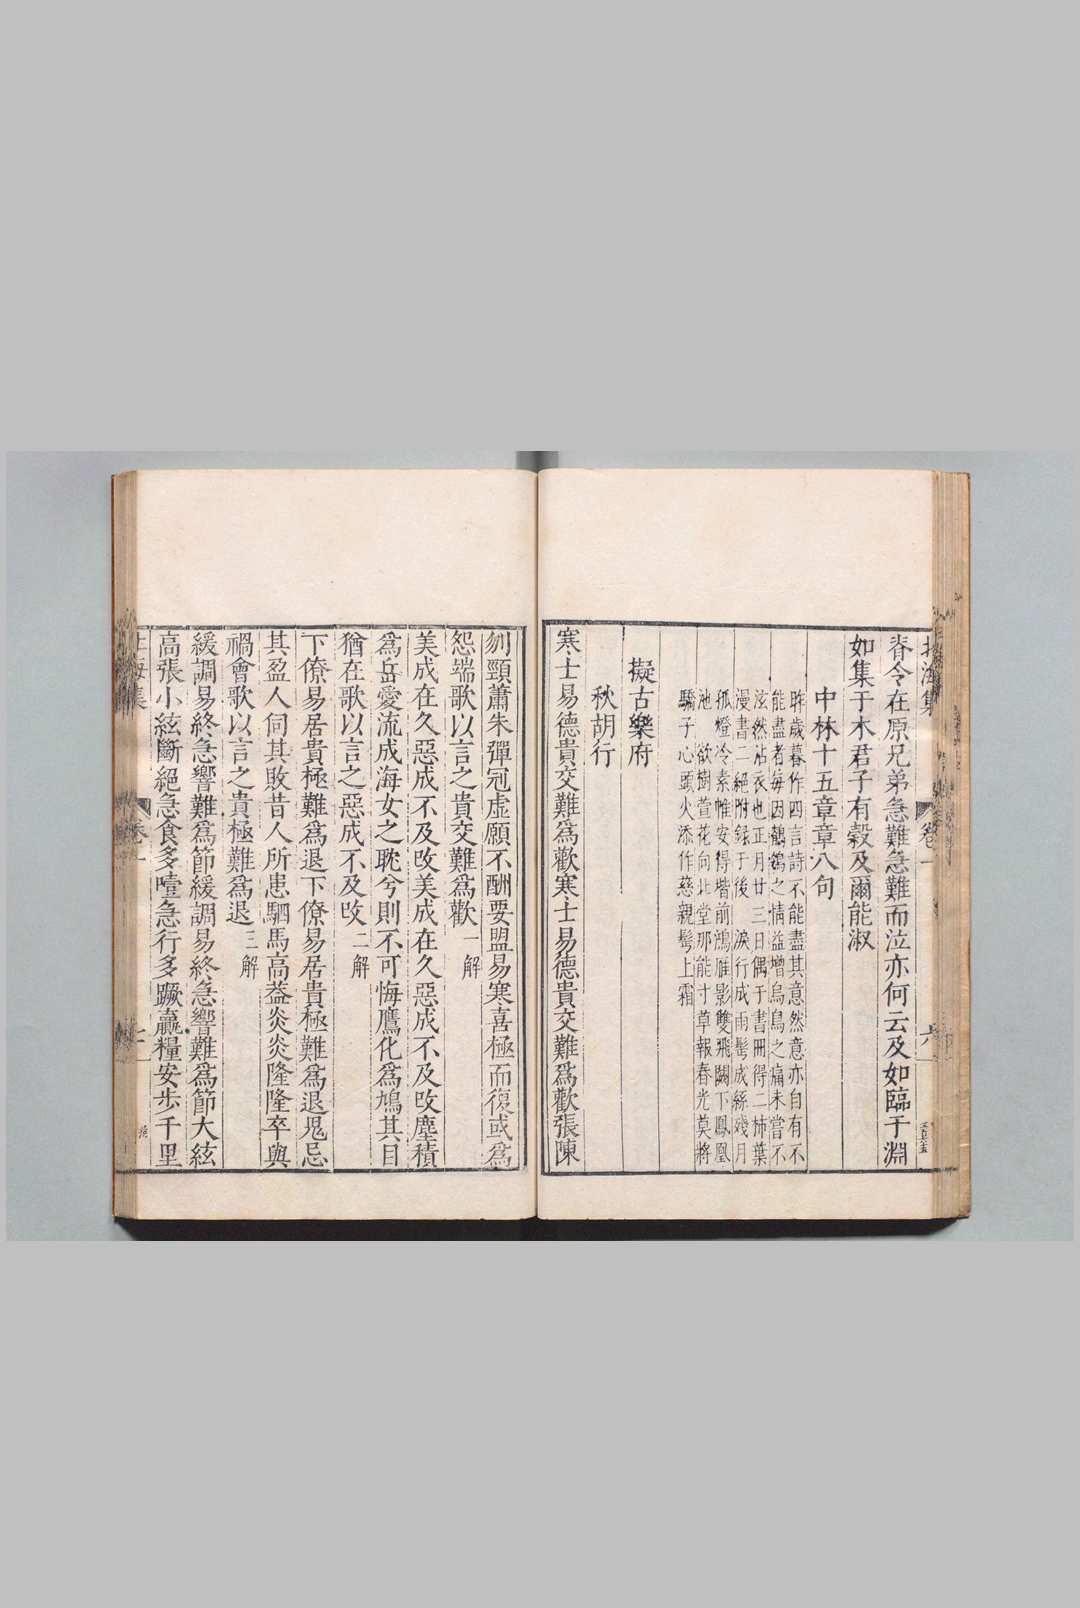 脊令在原兄弟急難急難而泣亦何云及如臨于淵
如集于木君子有穀及爾能淑
中林十五章章八句
昨歲暮作四言詩不能盡其意然意亦自有不
能盡者每因鶺鴒之情益增烏鳥之痛未嘗不
泫然沾衣也正月廿三日偶于書冊得二柿葉
漫書二絕附錄于後 淚行成雨髩成絲殘月
孤燈冷素帷安得堦前鴻雁影雙飛闕下鳳凰
池 欲樹萱花向北堂那能寸草報春光莫將
驕子心頭火添作慈親髩上霜
擬古樂府
秋胡行
寒士易德貴交難爲歡寒士易德貴交難爲歡張陳
刎頸蕭朱彈冠虛願不酬要盟易寒喜極而復或爲
怨端歌以言之貴交難爲歡 一解
美成在久惡成不及改美成在久惡成不及改塵積
爲岳愛流成海女之耽兮則不可悔鷹化爲鳩其目
猶在歌以言之惡成不及改 二解
下僚易居貴極難爲退下僚易居貴極難爲退鬼忌
其盈人伺其敗昔人所患駟馬高葢炎炎隆隆卒與
禍會歌以言之貴極難爲退 三解
緩調易終急響難爲節緩調易終急響難爲節大絃
高張小絃斷絕急食多噎急行多蹶贏糧安步千里
卷一